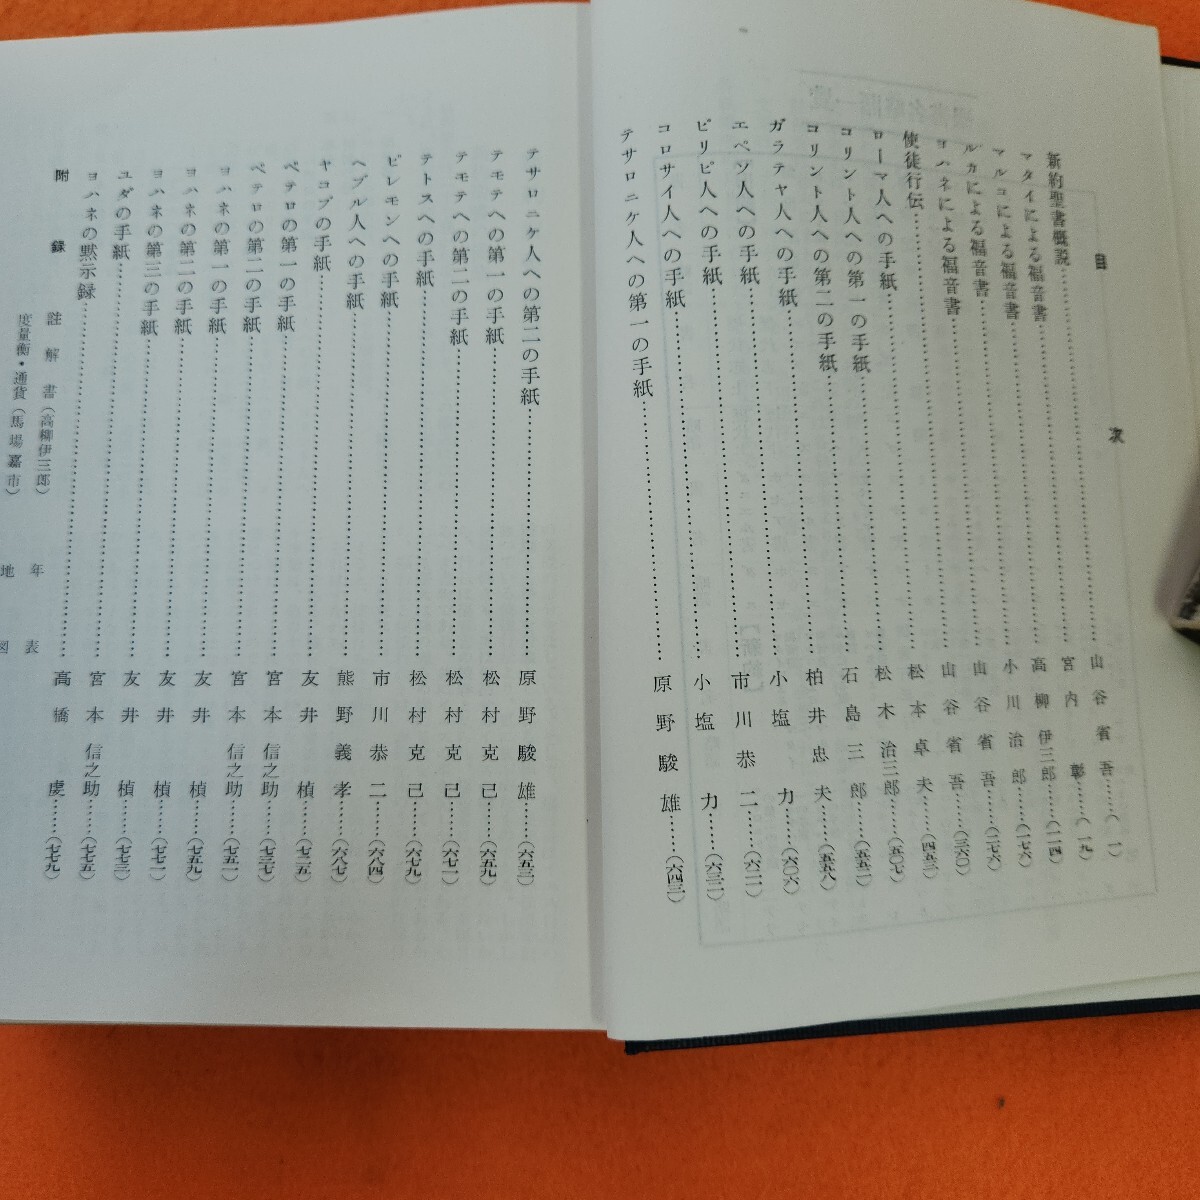 目次
新約聖書概説……山谷省吾……(一)
マタイによる福音書……宮内彰……(一九)
マルコによる福音書……高柳伊三郎……(一一四)
ルカによる福音書……小川治郎……(一七六)
ヨハネによる福音書……山谷省吾……(二七六)
使徒行伝……山谷省吾……(三六〇)
ローマ人への手紙……松本卓夫……(四五三)
コリント人への第一の手紙……松木治三郎……(五〇七)
コリント人への第二の手紙……石島三郎……(五五二)
ガラテヤ人への手紙……柏井忠夫……(五五八)
エペソ人への手紙……小塩力……(六〇六)
ピリピ人への手紙……市川恭二……(六二一)
コロサイ人への手紙……小塩力……(六三二)
テサロニケ人への第一の手紙……原野駿雄……(六四三)
テサロニケ人への第二の手紙……原野駿雄……(六五三)
テモテへの第一の手紙……松村克己……(六五九)
テモテへの第二の手紙……松村克己……(六七一)
テトスへの手紙……松村克己……(六七九)
ピレモンへの手紙……市川恭二……(六八四)
ヘブル人への手紙……熊野義孝……(六八七)
ヤコブの手紙……友井楨……(七二五)
ペテロの第一の手紙……宮本信之助……(七三七)
ペテロの第二の手紙……宮本信之助……(七五一)
ヨハネの第一の手紙……友井楨……(七五九)
ヨハネの第二の手紙……友井楨……(七七一)
ヨハネの第三の手紙……友井楨……(七七三)
ユダの手紙……宮本信之助……(七七五)
ヨハネの黙示録……高橋虔……(七七九)
附録 註解書(高柳伊三郎) 年表
度量衡・通貨(馬場嘉市) 地図